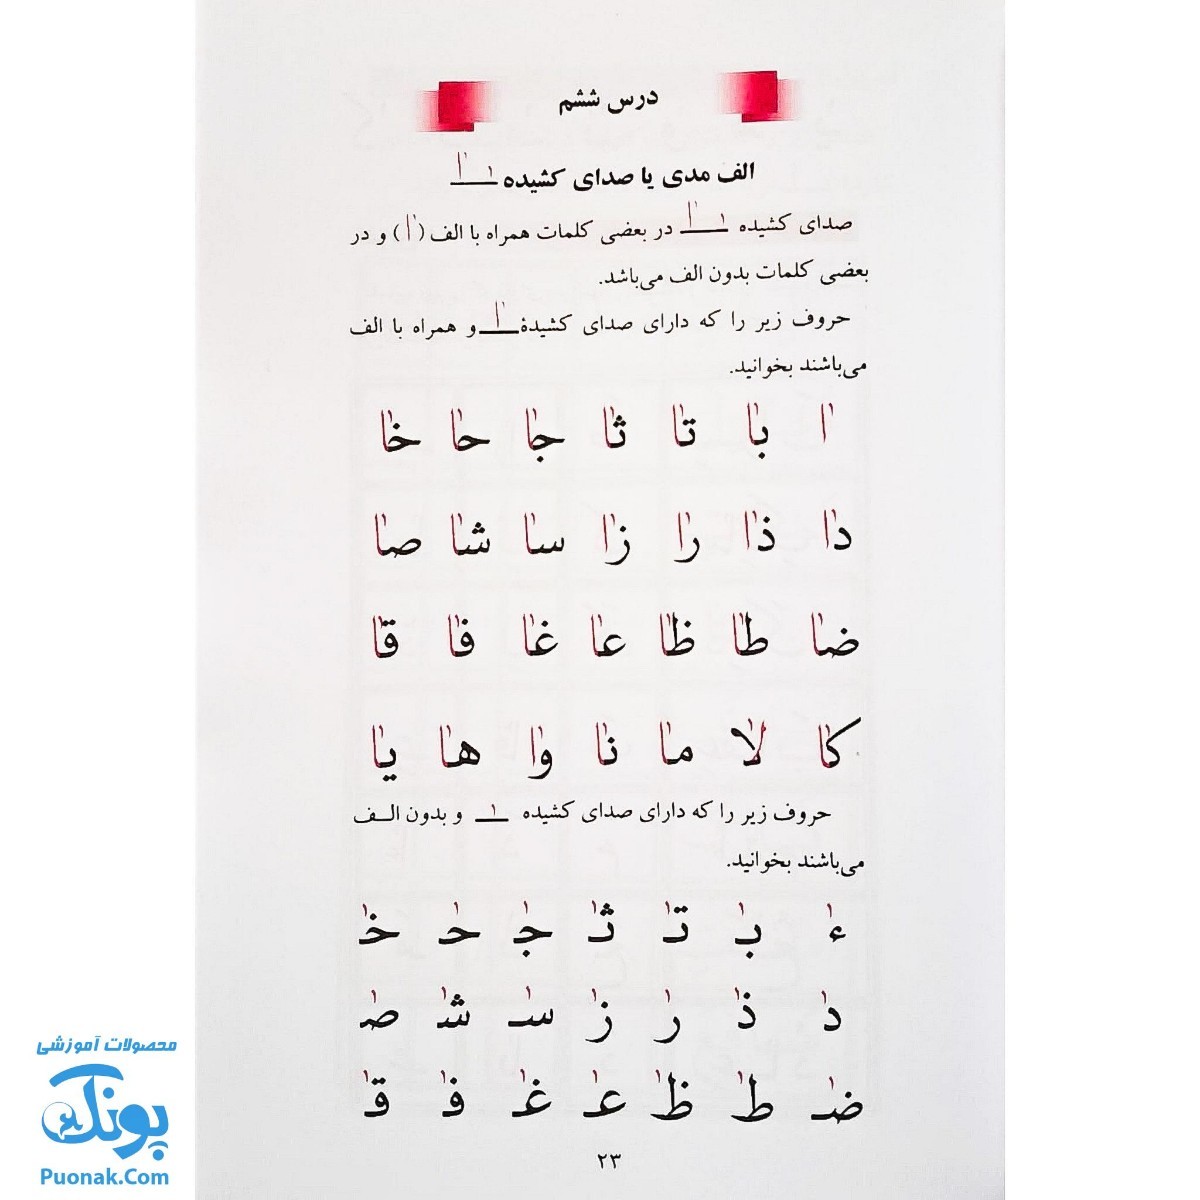 درس ششم
الف مدی یا صدای کشیده ـٰـ ـٰا
صدای کشیده ـٰـ ـٰا در بعضی کلمات همراه با الف (ـٰا) و در
بعضی کلمات بدون الف می‌باشد.
حروف زیر را که دارای صدای کشیدهٔ ـٰا و همراه با الف
می‌باشند بخوانید.
ٰا بٰا تٰا ثٰا جٰا حٰا خٰا
دٰا ذٰا رٰا زٰا سٰا شٰا صٰا
ضٰا طٰا ظٰا عٰا غٰا فٰا قٰا
کٰا لٰا مٰا نٰا وٰا هٰا یٰا
حروف زیر را که دارای صدای کشیده ـٰـ و بدون الـف
می‌باشند بخوانید.
ءٰ بـٰ تـٰ ثـٰ جـٰ حـٰ خـٰ
دٰ ذٰ رٰ زٰ سـٰ شـٰ صـٰ
ضـٰ طـٰ ظـٰ عـٰ غـٰ فـٰ قـٰ
۲۳
محصولات آموزشی
پونک
Puonak.Com